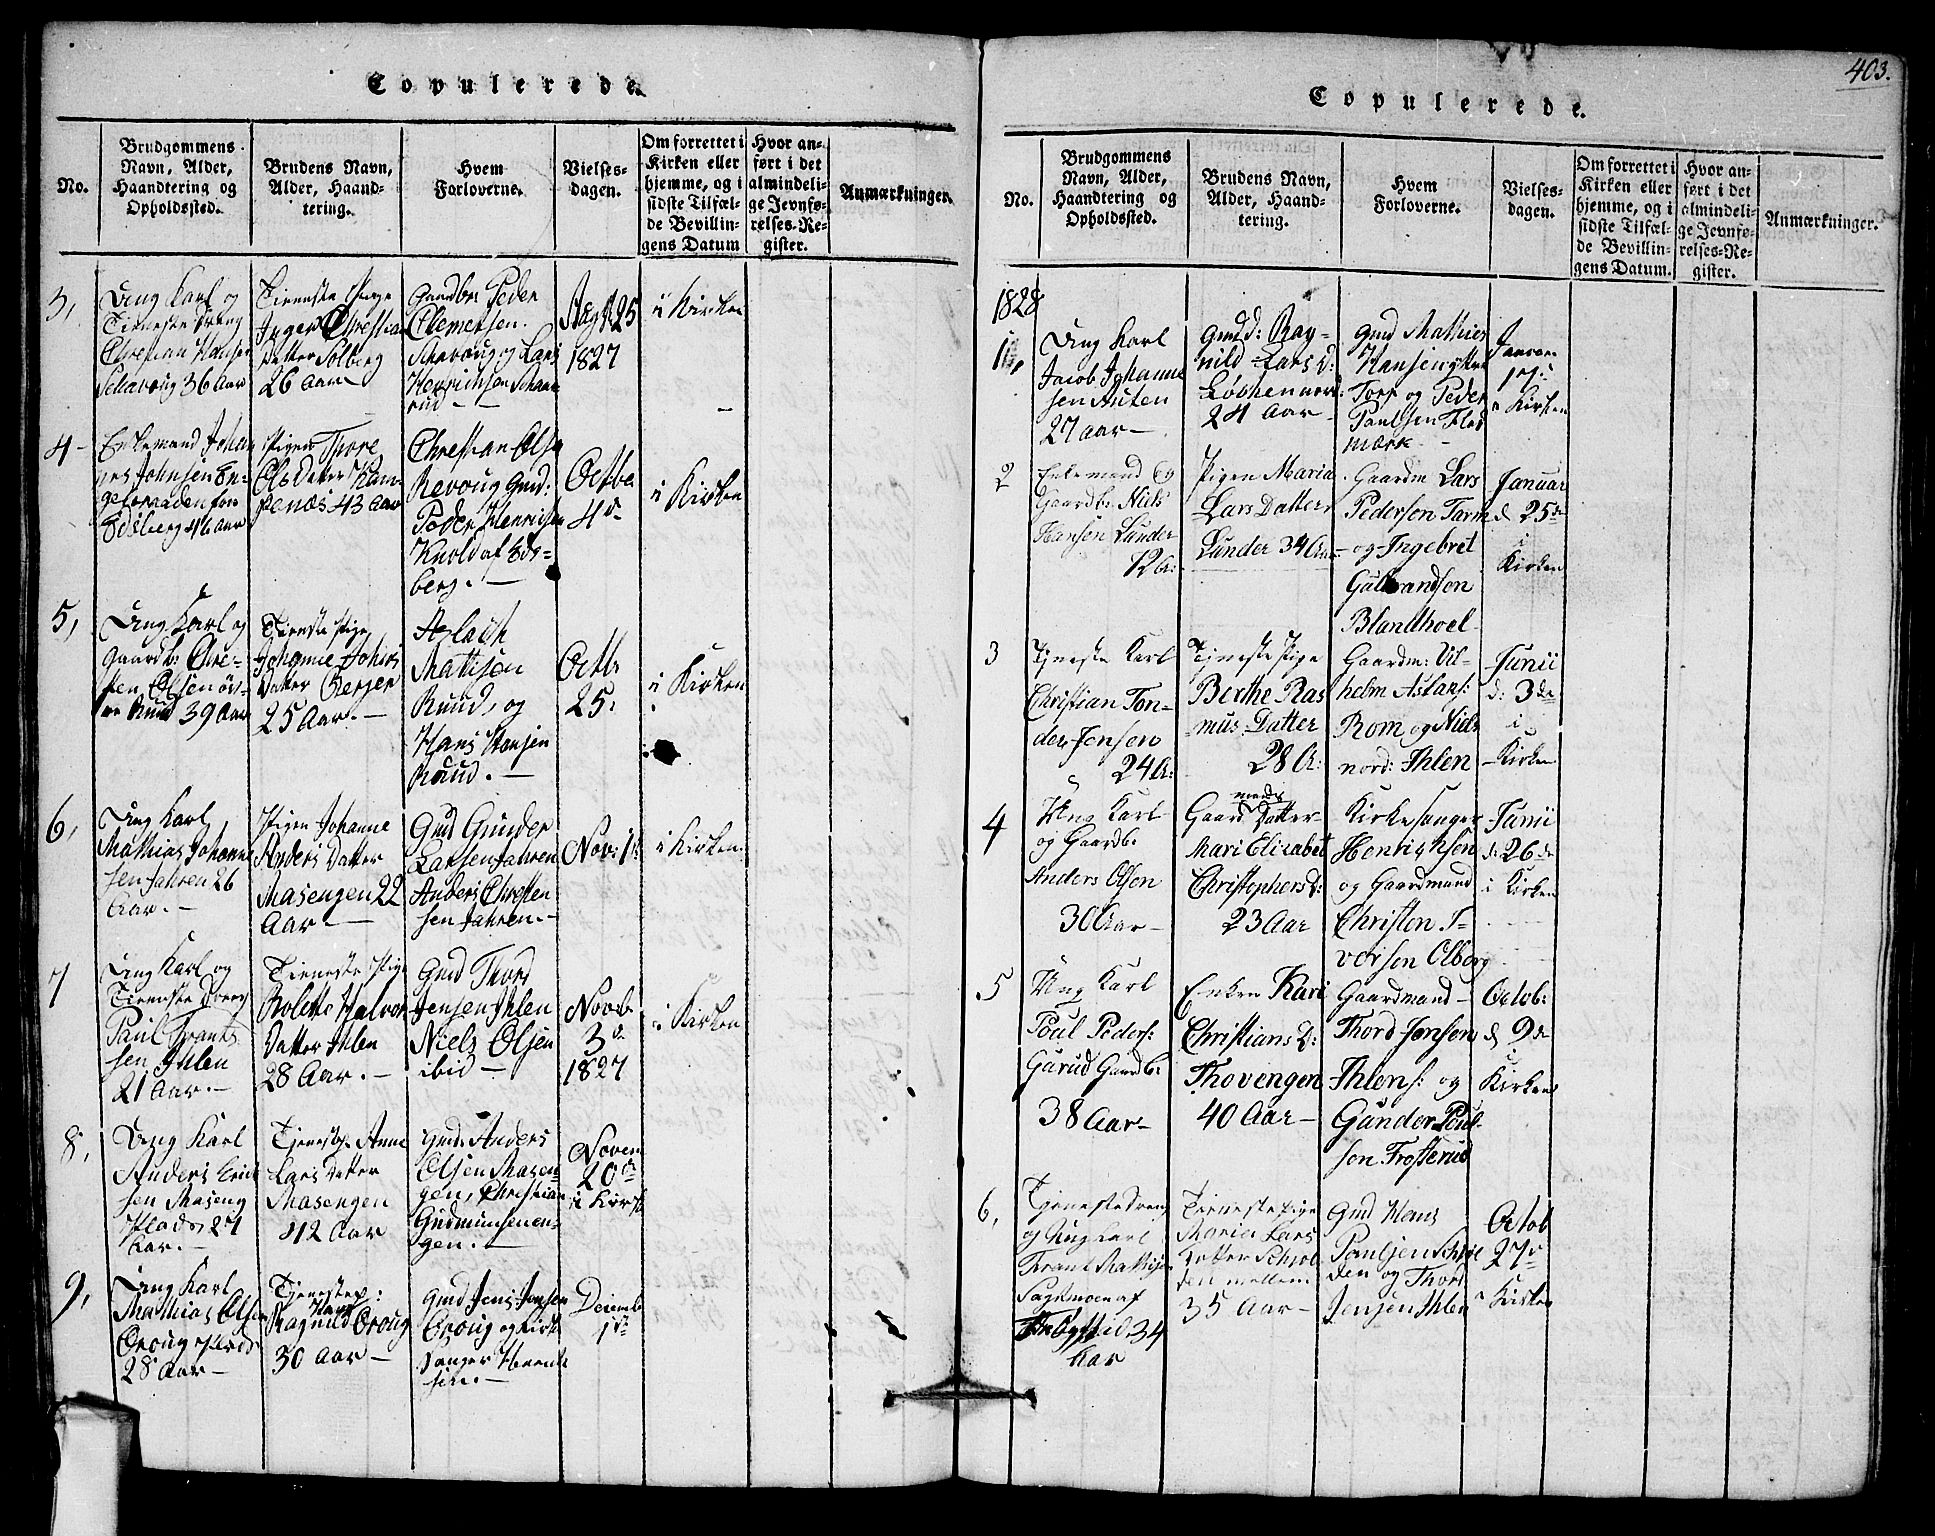 Copulerede.
No.
Brudgommens
Navn, Alder,
Haandtering og
Opholdssted.
Brudens Navn,
Alder, Haand-
tering.
Hvem
Forloverne.
Vielses-
dagen.
Om forrettet i
Kirken eller
hjemme, og i
sidste Tilfæl-
de Bevillin-
gens Datum
Hvor an-
ført i det
almindeli-
ge Jevnfø-
relses-Re-
gister.
Anmærkninger.
3,
Ung Karl og
Tieneste Dreng
Christian Hansen
36 Aar
Tieneste Pige
Inger Christian
Datter Solberg
26 Aar
Gaardbr Peder
Clemetsen
og Lars
Henrichsen
rud
Aug 25
1827
i Kirken
4
Enkemand Johan
nes Johnsen
Edsberg 46 Aar
Pigen Thore
Ols Datter
43 Aar
Christian Olsen
Revoug Gmd:
Peder Henrichsen
Knold af Eds-
berg.
Octbr
4de
i Kirken
5,
Ung Karl og
Gaardb: Chri-
sten Olsen øst-
re Ruud 39 Aar
Tieneste Pige
Johanne Johns
Datter Berger
25 Aar.
Aslach
Mattisen
Ruud, og
Hans Hansen
Ruud.
Octb:
25:
i Kirken
6,
Ung Karl
Mathias Johanne
sen Jahren 26
Aar.
Pigen Johanne
Anders Datter
Masengen 22
Aar
Gmd Gunder
Larsen Jahren
Anders Christen
sen Jahren.
Nov: 1
i Kirken
7
Ung Karl og
Tieneste Dreng
Paul Frants
sen Ihlen
21 Aar.
Tieneste Pige
Bolette Halvor
Datter Ihlen
28 Aar.
Gmd Thord
Jensen Ihlen
Niels Olsen
ibid
Novb
3de
1827
i Kirken
8,
Ung Karl
Anders Erich
sen Maseng
Plads 27
Aar.
Tjenestp. Anne
Lars Datter
Masengen
42 Aar
Gmd: Anders
Olsen Masen
gen, Christian
Gudmunsen en-
gen.
Novem
20de
i Kirk
9,
Ung Karl
Mathias Olsen
Oroug Plads
28 Aar
Tjenestep:
Hans
Ragnild Oroug
30 Aar
Gmd Jens Jensen
Oroug og Kirke
Sanger Henrik
sen.
Deiemb
1ste
403.
Copulerede.
No.
Brudgommens
Navn, Alder,
Haandtering og
Opholdssted.
Brudens Navn,
Alder, Haand-
tering.
Hvem
Forloverne.
Vielses-
dagen.
Om forrettet i
Kirken eller
hjemme, og i
sidste Tilfæl-
de Bevillin-
gens Datum.
Hvor an-
ført i det
almindeli-
ge Jevnfø-
relses-Re-
gister.
Anmærkninger.
1828
1,
Ung Karl
Jacob Johanne
sen
27 Aar
Gmd d: Rag-
nild Lars d:
24 Aar
Gmd Mathies
Hansen
Torp og Peder
Paulsen Flad
mark
Januar
17:
i Kirken
2
Enkemand og
Gaardb: Niels
Hansen Lunder
72 A:
Pigen Maria
Lars Datter
Lunder 34 Aar
Gaardm Lars
Pedersen Tarm
og Ingebret
Gulbrandsen
Blandhoel
Januar
d 25de
i
Kirken
3
Tjeneste Karl
Christian Ton-
der Jensen
24 A:
Tjeneste Pige
Berthe Ras
mus-Datter
28 A:
Gaardm: Vil-
helm Aslans:
Rom og Niels
nord: Ihlen
Junii
d: 3de
i
Kirken
4
Ung Karl
og Gaardb:
Anders Olsen
30 Aar
mands
Gaard Datter
Mari Elisabet
Christophers D:
23 Aar
Kirkesanger
Henrichsen
og Gaardmand
Christen I-
versen Olberg
Junii
d: 26de
i Kirken
5
Ung Karl
Poul Peders:
Garud Gaardb:
38 Aar
Enken Kari
Christians D:
Thovengen
40 Aar
Gaardmand
Thord Jensen
Ihlens: og
Gunder Poul-
sen Frosterud
Octob:
d 9de
i
Kirken
6,
Tjeneste Dreng
og Ung Karl
Frant Mathisen
Sagmoen af
34
Aar
Tieneste Pige
Maria Lars
Datter Schiol
den mellem
35 Aar
Gmd Hans
Paulsen Schiol
den og Thord
Jensen Ihlen
Octob
27de
i Kirken